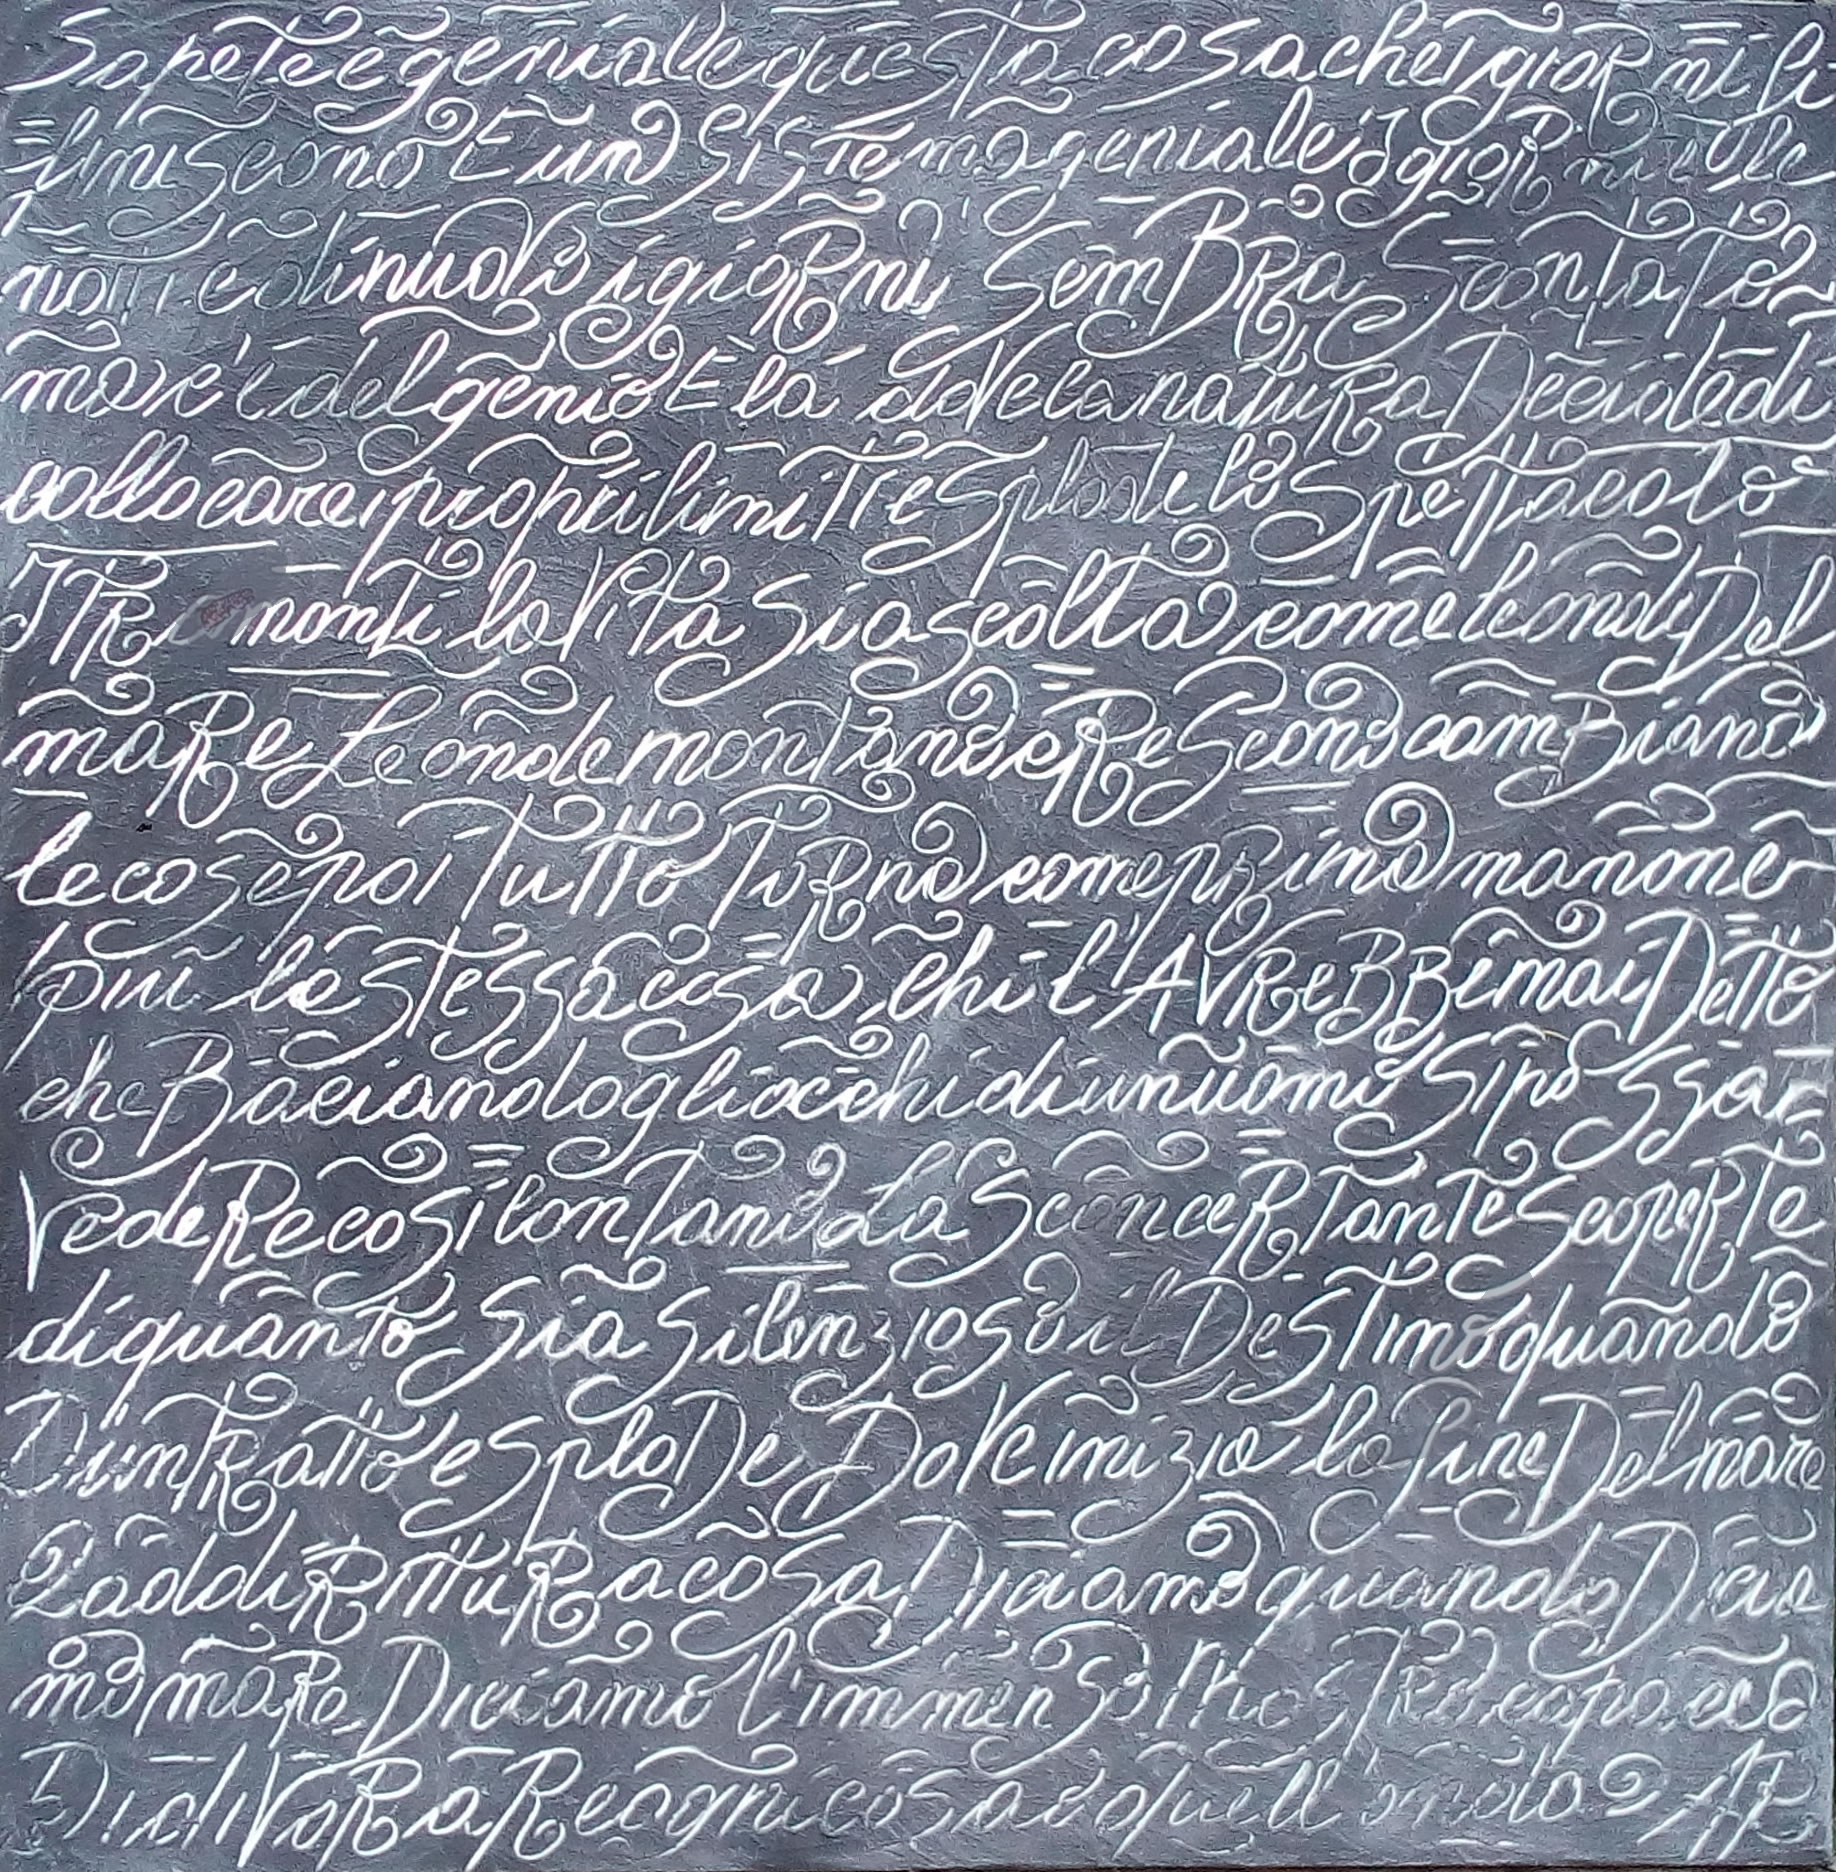 Sapete è geniale questa cosa che i giorni fi
finiscono È un sistema geniale i giorni e le
notti e di nuovo i giorni Sembra Scontato
ma c'è del genio E là dove la natura Decide di
collocare i propri limiti esplode lo Spettacolo
I TRamonti la Vita Si ascolta come le onde Del
maRe Le onde montano cRescono cambiano
le cose poi Tutto ToRna come prima ma non è
più la stessa cosa chi l'AVRebbe mai Detto
che Baciando gli occhi di un uomo Si possa
VedeRe così lontano La SconceRtante ScopeRta
di quanto Sia Silenzioso il Destino quando
D'un tRatto esploDe Dove inizia la fine Del mare
O addiRittuRa cosa Diciamo quando Dicia
mo maRe Diciamo l'immenso mostRo capace
Di diVoRaRe ogni cosa o quell'onda